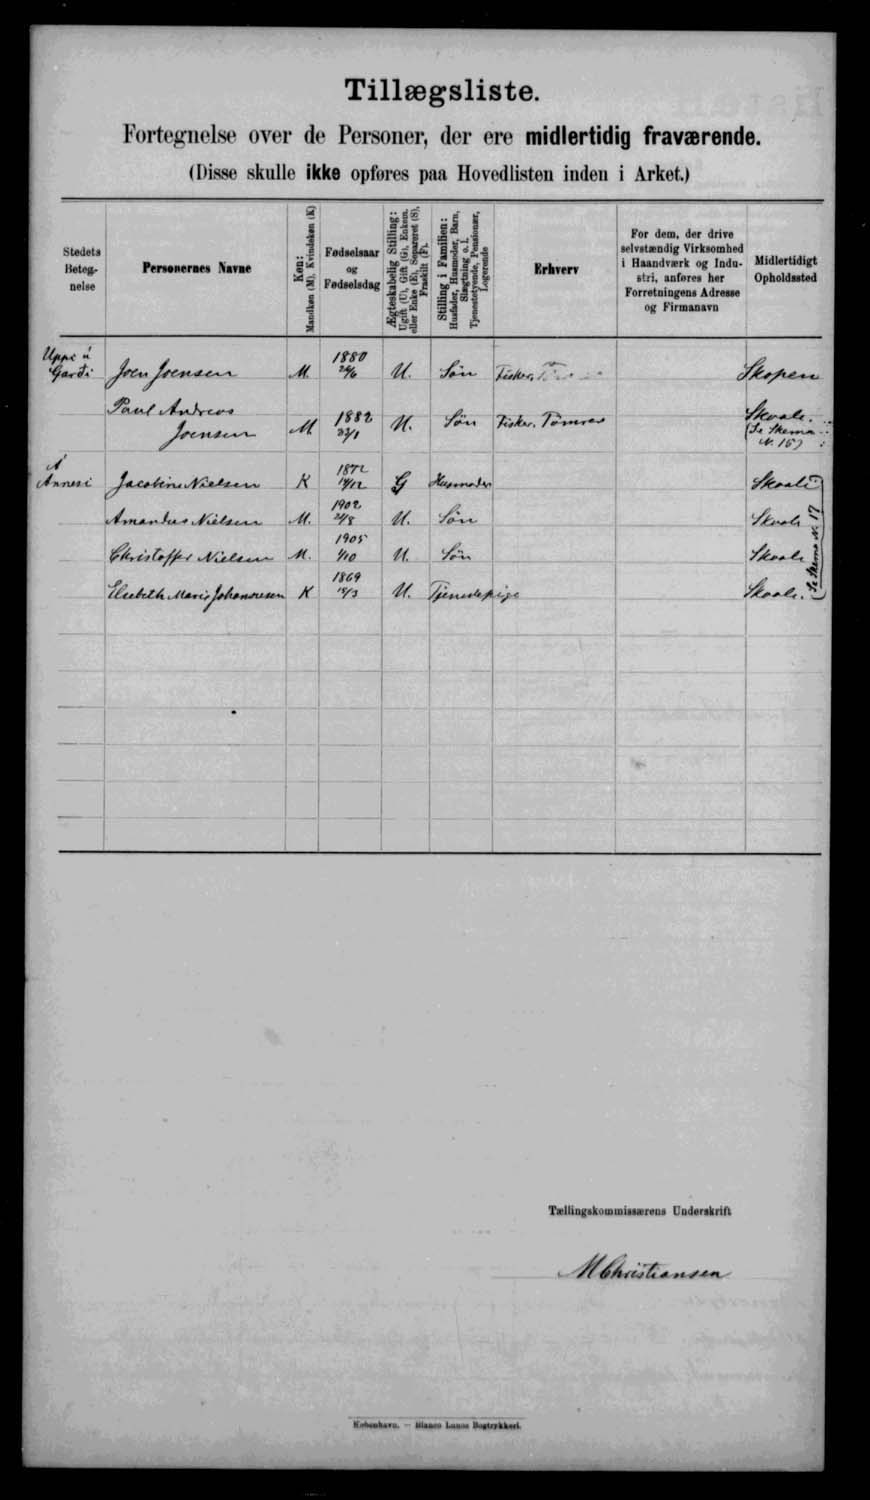 Tillægsliste.
Fortegnelse over de Personer, der ere midlertidig fraværende.
(Disse skulle ikke opføres paa Hovedlisten inden i Arket.)
Stedets Beteg-nelse
Personernes Navne
Køn: Mandkøn (M), Kvindekøn (K)
Fødselsaar og Fødselsdag
Ægteskabelig Stilling: Ugift (U), Gift (G), Enkem. eller Enke (E), Separeret (S), Fraskilt (F).
Stilling i Familien: Husfader, Husmoder, Barn, Slægtning o. l. Tjenestetyende, Pensionær, Logerende
Erhverv
For dem, der drive selvstændig Virksomhed i Haandværk og Indu-stri, anføres her Forretningens Adresse og Firmanavn
Midlertidigt Opholdssted
Uppi í Garði Joen Joensen M. 1880 U. Søn Fisker, Skopen
Paul Andreas Joensen M 1882 22/1 U. Søn Fisker, Tømrer Skaale. (Se Skema N. 15)
Á Annesi Jacobine Nielsen K 1872 G Husmoder Skaale
Amandus Nielsen M. 1902 U. Søn Skaale
Christoffer Nielsen M. 1905 1/10 U. Søn Skaale
Elsebeth Marie Johannesen K 1869 U. Tjenestepige Skaale.
(Se Skema N. 17)
Tællingskommissærens Underskrift
M Christiansen
København. — Bianco Lunos Bogtrykkeri.